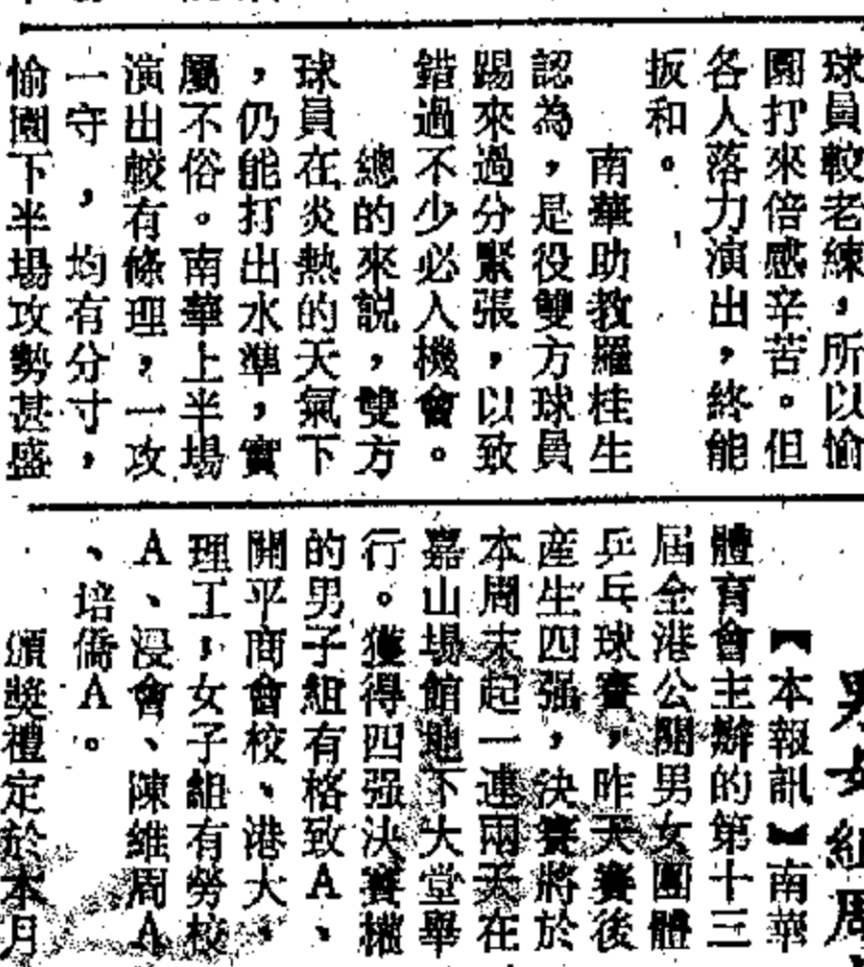 球員較老練，所以愉
園打來倍感辛苦。但
各人落力演出，終能
扳和。
南華助教羅桂生
認為，是役雙方球員
踢來過分緊張，以致
錯過不少必入機會。
總的來說，雙方
球員在炎熱的天氣下
，仍能打出水準，實
屬不俗。南華上半場
演出較有條理，一攻
一守，均有分寸，
愉園下半場攻勢甚盛
男女組周
【本報訊】南華
體育會主辦的第十三
屆全港公開男女團體
乒乓球賽，昨天賽後
產生四强，決賽將於
本周末起一連兩天在
嘉山場館地下大堂舉
行。獲得四强決賽權
的男子組有格致A、
開平商會校、港大、
理工，女子組有勞校
A、浸會、陳維周A
、培僑A。
頒獎禮定於本月